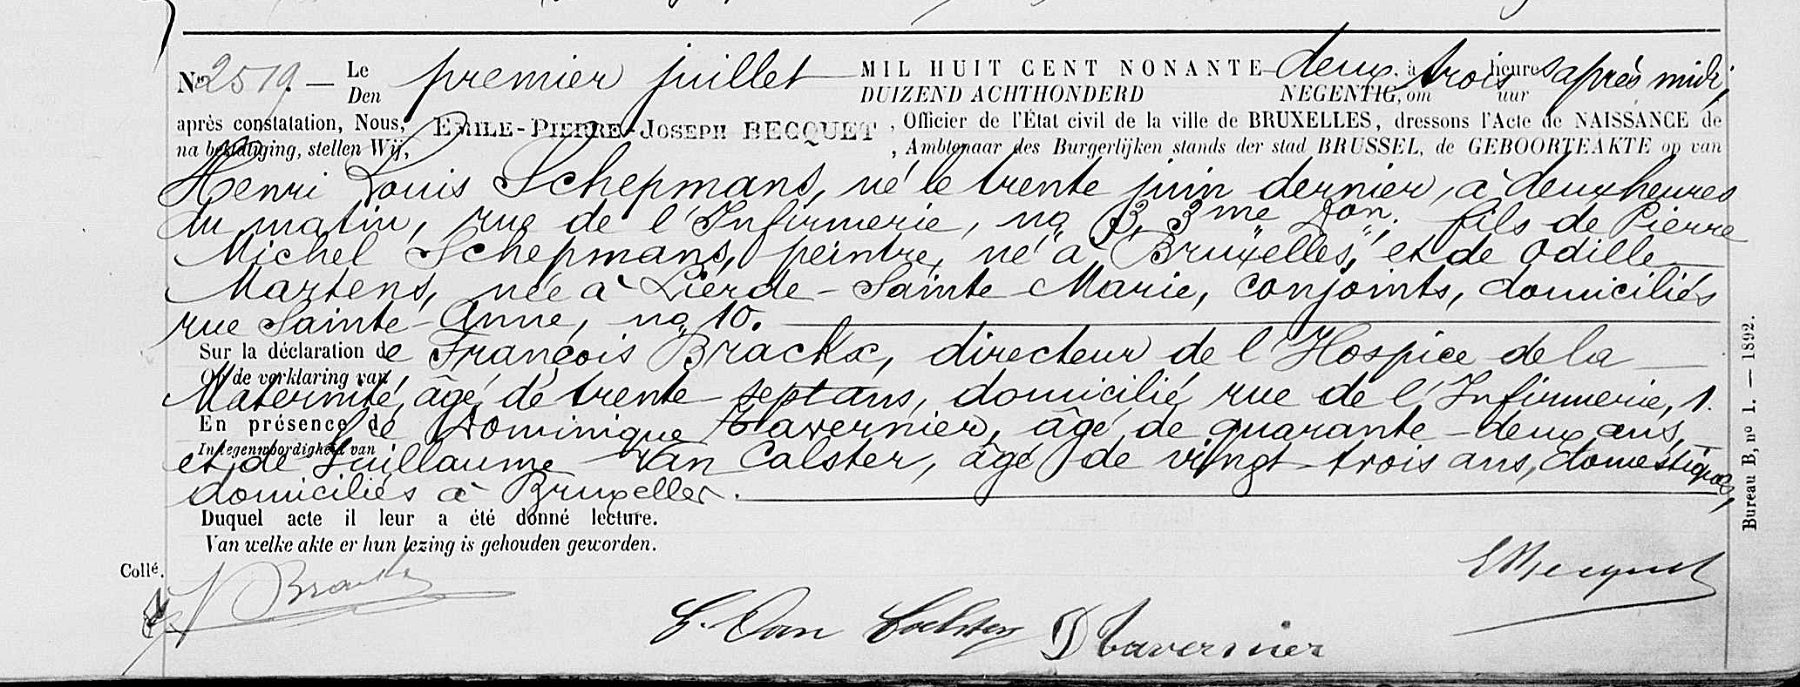 No 2519. — Le premier juillet MIL HUIT CENT NONANTE deux, à trois heures après midi,
Den DUIZEND ACHTHONDERD NEGENTIG, om uur
après constatation, Nous, EMILE-PIERRE-JOSEPH BECQUET, Officier de l'État civil de la ville de BRUXELLES, dressons l'Acte de NAISSANCE de
na bevestiging, stellen Wij, , Ambtenaar des Burgerlijken stands der stad BRUSSEL, de GEBOORTEAKTE op van
Henri Louis Schepmans, né le trente juin dernier, à deux heures
du matin, rue de l'Infirmerie, no 3, 3me Don. fils de Pierre
Michel Schepmans, peintre, né à Bruxelles, et de Odille
Martens, née à Lierde-Sainte Marie, conjoints, domiciliés
rue Sainte-Anne, no 10.
Sur la déclaration de François Brackx, directeur de l'Hospice de la
Op de verklaring van
Maternité, âgé de trente-sept ans, domicilié rue de l'Infirmerie, 1.
En présence de Dominique Tavernier, âgé de quarante-deux ans,
In tegenwoordigheid van
et de Guillaume Van Calster, âgé de vingt-trois ans, domestiques,
domiciliés à Bruxelles.
Duquel acte il leur a été donné lecture.
Van welke akte er hun lezing is gehouden geworden.
Collé.
Brackx
EBecquet
G. Van Calster
D Tavernier
Bureau B, no 1. — 1892.